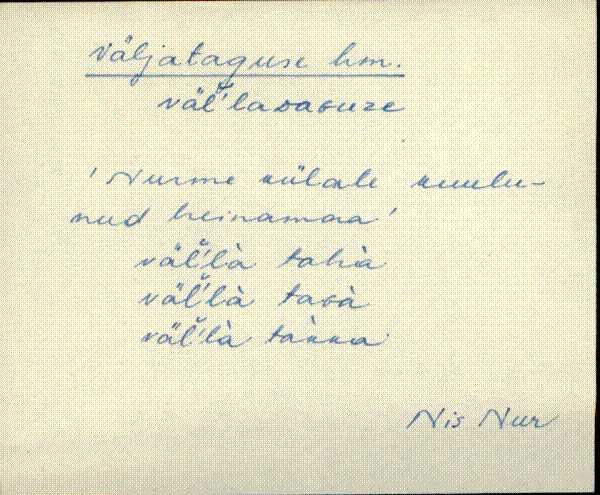 väljataguse hm.
väĺ̆ĺlaDaGuze
'Nurme külale kuulu-
nud heinamaa'
väĺ̆ĺlà tahà
väĺ̆ĺlà taGà
väĺ̆ĺlà tàkka
Nis Nur